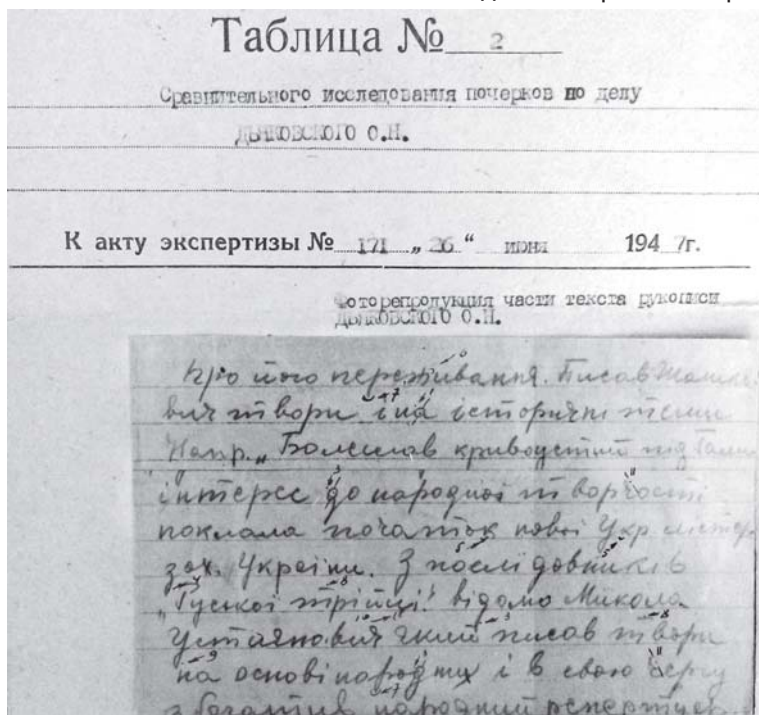 Таблица № 2
Сравнительного исследования почерков по делу
ДЬЯКОВСКОГО О.Н.
К акту экспертизы № 171 „ 26 “ июня 194 7г.
Фоторепродукция части текста рукописи
ДЬЯКОВСКОГО О.Н.
про його переживання. Писав Шашке-
вич твори і на історичні теми
Напр. „Болеслав кривоустий під Гали
інтерес до народної творчости
поклала початок нової Укр. літер.
зах. України. З послідовників
„Руської трійці" відомо Микола
Устіянович який писав твори
на основі народних і в свою чергу
збогатив народний репертуар